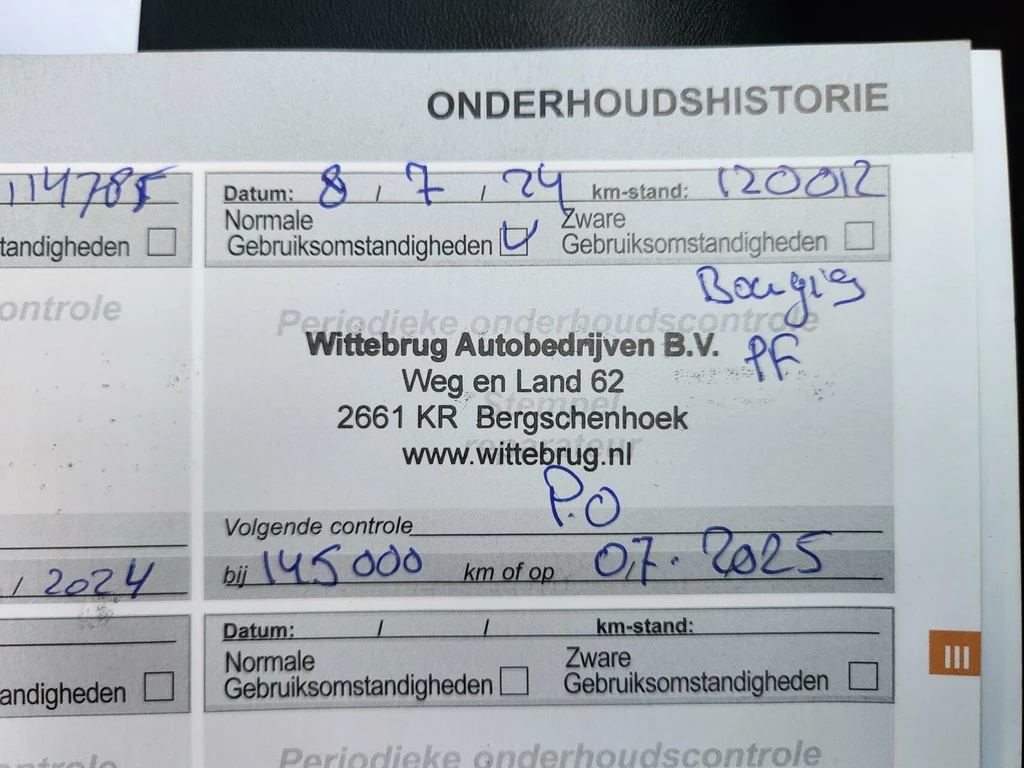 ONDERHOUDSHISTORIE
114785
tandigheden
ontrole
/ 2024
Datum: 8 / 7 / 24 km-stand: 120012
Normale Zware
Gebruiksomstandigheden Gebruiksomstandigheden
Bougies
Periodieke onderhoudscontrole
Wittebrug Autobedrijven B.V. PF
Weg en Land 62
Stempel
2661 KR Bergschenhoek
reparateur
www.wittebrug.nl
Volgende controle P.O
bij 145000 km of op 07.2025
andigheden
Datum: / / km-stand:
Normale Zware
Gebruiksomstandigheden Gebruiksomstandigheden
III
ntrole Periodieke onderhoudscontrole